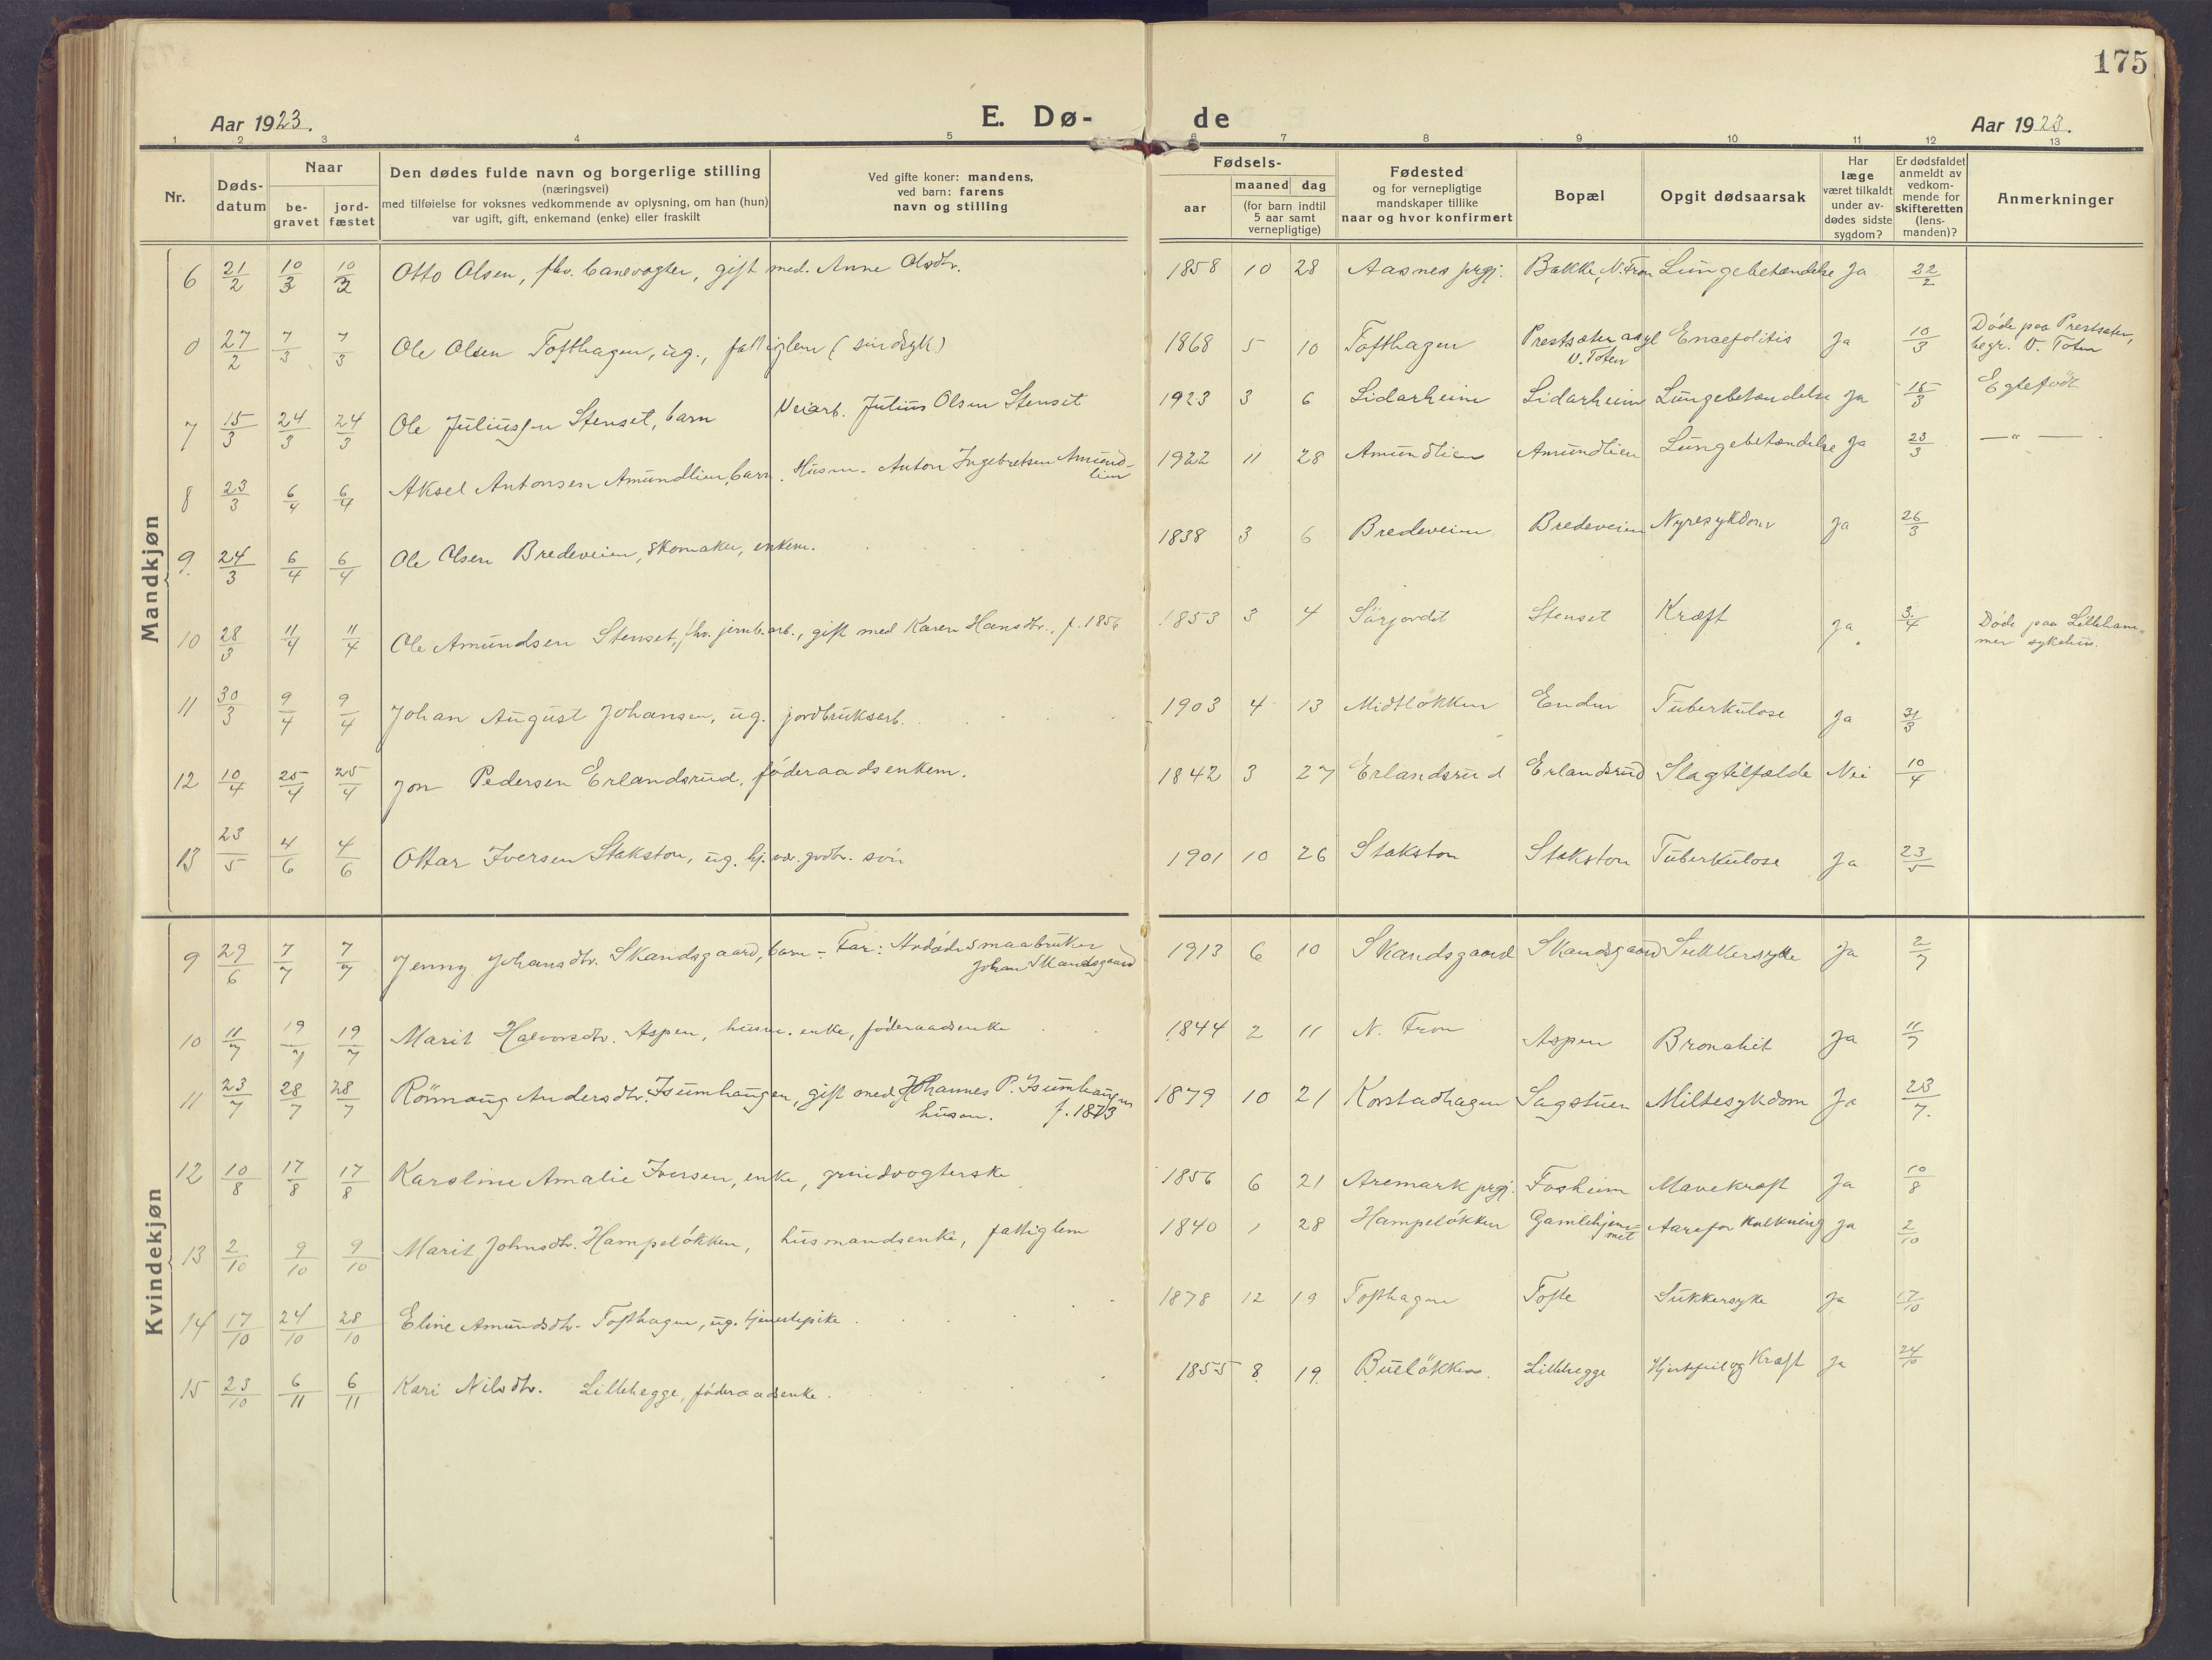 175
Aar 1923.
E. Dø-
de
Aar 1923.
1 2 3 4 5 6 7 8 9 10 11 12 13
Nr.
Døds-
datum
Naar
be-
gravet
jord-
fæstet
Den dødes fulde navn og borgerlige stilling
(næringsvei)
med tilføielse for voksnes vedkommende av oplysning, om han (hun)
var ugift, gift, enkemand (enke) eller fraskilt
Ved gifte koner: mandens,
ved barn: farens
navn og stilling
Fødsels-
aar
maaned dag
(for barn indtil
5 aar samt
vernepligtige)
Fødested
og for vernepligtige
mandskaper tillike
naar og hvor konfirmert
Bopæl
Opgit dødsaarsak
Har
læge
været tilkaldt
under av-
dødes sidste
sygdom?
Er dødsfaldet
anmeldt av
vedkom-
mende for
skifteretten
(lens-
manden)?
Anmerkninger
Mandkjøn
6 21/2 10/3 10/3 Otto Olsen, fhv. banevogter, gift med. Anne Olsdtr. 1858 10 28 Aasnes prgj. Bakke, N. Fron Lungebetændelse Ja 22/2
0 27/2 7/3 7/3 Ole Olsen Tofthagen, ug., fattiglem (sindsyk) 1868 5 10 Tofthagen Prestsæter asyl V. Toten Encefolitis Ja 10/3 Døde paa Prestsæter, begr. V. Toten
7 15/3 24/3 24/3 Ole Juliussen Stenset, barn Veiarb. Julius Olsen Stenset 1923 3 6 Lidarheim Lidarheim Lungebetændelse Ja 15/3 Egtefødt
8 23/3 6/4 6/4 Aksel Antonsen Amundlien, barn. Husm. Anton Ingebretsen Amundlien 1922 11 28 Amundlien Amundlien Lungebetændelse Ja 23/3 — " —
9 24/3 6/4 6/4 Ole Olsen Bredeveien, skomaker, enkem. 1838 3 6 Bredeveien Bredeveien Nyresykdom Ja 26/3
10 28/3 11/4 11/4 Ole Amundsen Stenset, fhv. jernb.arb., gift med Karen Hansdtr., f. 1856 1853 3 4 Sörjordet Stenset Kræft Ja 3/4 Døde paa Lillehammer sykehus.
11 30/3 9/4 9/4 Johan August Johansen, ug. jordbruksarb. 1903 4 13 Midtløkken Endin Tuberkulose Ja 31/3
12 10/4 25/4 25/4 Jon Pedersen Erlandsrud, föderaadsenkem. 1842 3 27 Erlandsrud Erlandsrud Slagtilfælde Nei 10/4
13 23/5 4/6 4/6 Ottar Iversen Stakston, ug. hj.vær. grdbr. sön 1901 10 26 Stakston Stakston Tuberkulose Ja 23/5
Kvindekjøn
9 29/6 7/7 7/7 Jenny Johansdtr. Skandsgaard, barn - Far: Avdøde smaabruker Johan Skandsgaard 1913 6 10 Skandsgaard Skandsgaard Sukkersyke Ja 2/7
10 11/7 19/7 19/7 Marit Halvorsdtr. Aspen, husm. enke, föderaadsenke 1844 2 11 N. Fron Aspen Bronchit Ja 11/7
11 23/7 28/7 28/7 Rönnaug Andersdtr. Isumhaugen, gift med Johannes P. Isumhaugen husm. f. 1873 1879 10 21 Korstadhagen Sagstuen Miltesykdom Ja 23/7.
12 10/8 17/8 17/8 Karoline Amalie Iversen, enke, grindvogterske 1856 6 21 Aremark prgj. Fosheim Mavekræft Ja 10/8
13 2/10 9/10 9/10 Marit Johnsdtr. Hampelökken, husmandsenke, fattiglem 1840 1 28 Hampelökken Gamlehjemmet Aareforkalkning Ja 2/10
14 17/10 24/10 28/10 Eline Amundsdtr. Tofthagen, ug. tjenestepike 1878 12 19 Tofthagen Tofte Sukkersyke Ja 17/10
15 23/10 6/11 6/11 Kari Nilsdtr. Lillehegge, föderaadsenke. 1855 8 19 Buelökken Lillehegge Hjertefeil og Kræft Ja 24/10